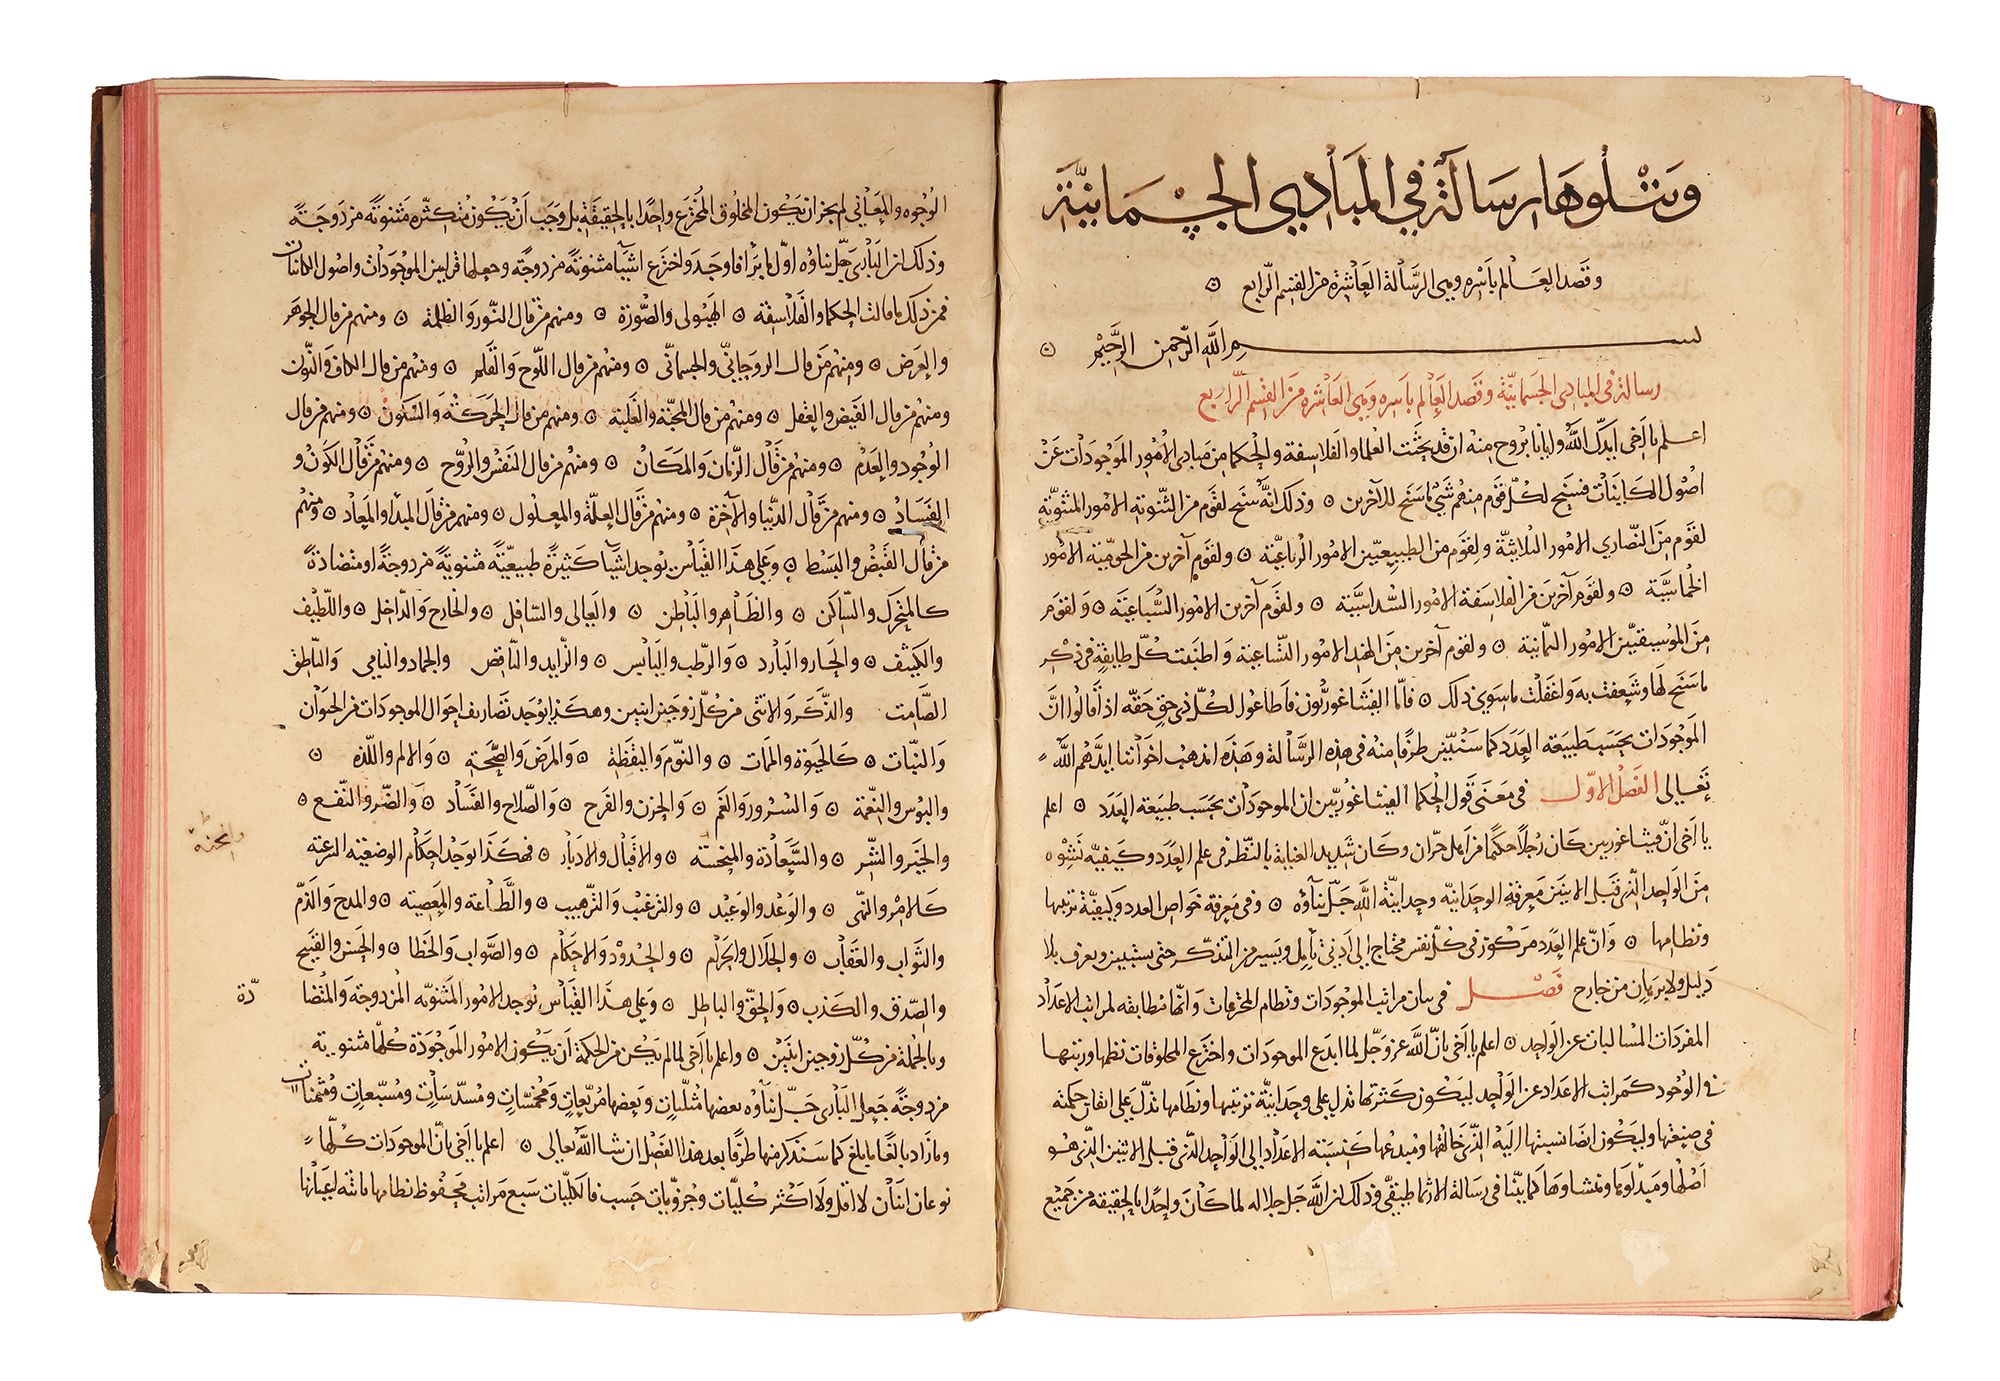 وتتلوها رسالة في المبادي الجسمانية
وقصد العالم باسره وهى الرسالة العاشرة من القسم الرابع ۞
بسم الله الرحمن الرحيم ۞
رسالة فى المبادى الجسمانية وقصد العالم باسره وهى العاشره من القسم الرابع
اعلم يا اخى ايدك الله وايانا بروح منه ان قد بحثت العلما والفلاسفة والحكما من مبادى الامور الموجودات عن
اصول الكاينات فسنح لكل قوم منهم شى ما سنح للآخرين ۞ وذلك انه سنح لقوم من الثنوية الامور المثنوية
لقوم من النصاري الامور الثلاثية ولقوم من الطبيعيين الامور الرباعية ۞ ولقوم آخرين من الخرمية الامور
الخماسية ۞ ولقوم آخرين من الفلاسفة الامور السداسية ۞ ولقوم آخرين الامور السباعية ۞ ولقوم
من الموسيقيين الامور الثمانية ۞ ولقوم آخرين من الهند الامور التساعية واطنبت كل طايفة فى ذكر
ما سنح لها وشغفت به واغفلت ما سوى ذلك ۞ فاما الفيثاغوريون فاطاعوا لكل ذى حق حقه اذ قالوا ان
الموجودات بحسب طبيعة العدد كما سنبين طرفا منه فى هذه الرسالة وهذه مذهب اخواننا ايدهم الله
تعالى الفصل الاول فى معنى قول الحكما الفيثاغوريين ان الموجودات بحسب طبيعة العدد ۞ اعلم
يا اخى ان فيثاغوريس كان رجلا حكيما من اهل حران وكان شديد العناية بالنظر فى علم العدد وكيفية نشوه
من الواحد الذى قبل الاثنين معرفة الوحدانية وحدانية الله جل ثناؤه ۞ وفى معرفة خواص العدد وكيفية ترتيبها
ونظامها ۞ وان علم العدد مركوز فى كل نفس محتاج الى ادنى تامل ويسير من التذكر حتى يستبين ويعرف بلا
دليل ولا برهان من خارج فصل فى بيان مراتب الموجودات ونظام المخترعات وانها مطابقه لمراتب الاعداد
المفردات المسالبات عن الواحد ۞ اعلم يا اخى بان الله عز وجل لما ابدع الموجودات واخترع المخلوقات نظمها ورتبها
فى الوجود كمراتب الاعداد عن الواحد ليكون كثرتها تدل على وحدانيته ترتيبها ونظامها تدل على اتقان حكمته
فى صنعتها وليكون ايضا نسبتها اليه الذى خالقها ومبدعها كنسبته الاعداد الى الواحد الذى قبل الاثنين الذى هو
اصلها ومبدأها ومنشاوها كما بينا فى رسالة الارثماطيقى وذلك ان الله جل جلاله لما كان واحدا بالحقيقة من جميع
الوجوه والمعاني لم يجز ان يكون المخلوق المخترع واحدا بالحقيقة بل وجب ان يكون متكثره مثنوية مزدوجة
وذلك ان البارى جل ثناؤه اول ما برا فاوجد واخترع اشيا مثنوية مزدوجة وجعلها قوانين الموجودات واصول الكاينات
فمن ذلك ما قالت الحكما والفلاسفة ۞ الهيولى والصورة ۞ ومنهم من قال النور والظلمة ۞ ومنهم من قال الجوهر
والعرض ۞ ومنهم من قال الروحانى والجسمانى ۞ ومنهم من قال اللوح والقلم ۞ ومنهم من قال الكاف والنون
ومنهم من قال الفيض والعقل ۞ ومنهم من قال المحبة والغلبة ۞ ومنهم من قال الحركة والسكون ۞ ومنهم من قال
الوجود والعدم ۞ ومنهم من قال الزمان والمكان ۞ ومنهم من قال النفس والروح ۞ ومنهم من قال الكون و
الفساد ۞ ومنهم من قال الدنيا والآخرة ۞ ومنهم من قال العلة والمعلول ۞ ومنهم من قال المبدا والمعاد ۞ ومنهم
من قال القبض والبسط ۞ وعلى هذا القياس يوجد اشيا كثيرة طبيعية مثنوية مزدوجة او متضادة
كالمتحرك والساكن ۞ والظاهر والباطن ۞ والعالى والسافل ۞ والخارج والداخل ۞ واللطيف
والكثيف ۞ والحار والبارد ۞ والرطب واليابس ۞ والزايد والناقص والجماد والنامى والناطق
الصامت والذكر والانثى من كل زوجين اثنين وهكذا توجد تصاريف احوال الموجودات من الحيوان
والنبات ۞ كالحيوة والممات ۞ والنوم واليقظة ۞ والمرض والصحة ۞ والالم واللذه ۞
والبوس والنعمة ۞ والسرور والغم ۞ والحزن والفرح ۞ والصلاح والفساد ۞ والضر والنفع ۞
والخير والشر ۞ والسعادة والمنحسة ۞ والاقبال والادبار ۞ فهكذا توجد احكام الوضعية الشرعية
كالامر والنهى ۞ والوعد والوعيد ۞ والترغيب والترهيب ۞ والطاعة والمعصية ۞ والمدح والذم
والثواب والعقاب ۞ والحلال والحرام ۞ والحدود والاحكام ۞ والصواب والخطا ۞ والحسن والقبيح
والصدق والكذب ۞ والحق والباطل ۞ وعلى هذا القياس توجد الامور المثنويه المزدوجة والمتضا دة
وبالجملة من كل زوجين اثنين ۞ واعلم يا اخى لما لم يكن من الحكمة ان يكون الامور الموجودة كلها مثنوية
مزدوجة جعل البارى جل ثناؤه بعضها مثلثات وبعضها مربعات ومخمسات ومسدسات ومسبعات ومثمنات
وما زاد بالغا ما بلغ كما سنذكر منها طرفا بعد هذا الفصل ان شا الله تعالى ۞ اعلم يا اخى بان الموجودات كلها
نوعان اثنان لا اقل ولا اكثر كليات وجزويات حسب فالكليات سبع مراتب محفوظ نظامها ثابتة اعيانها